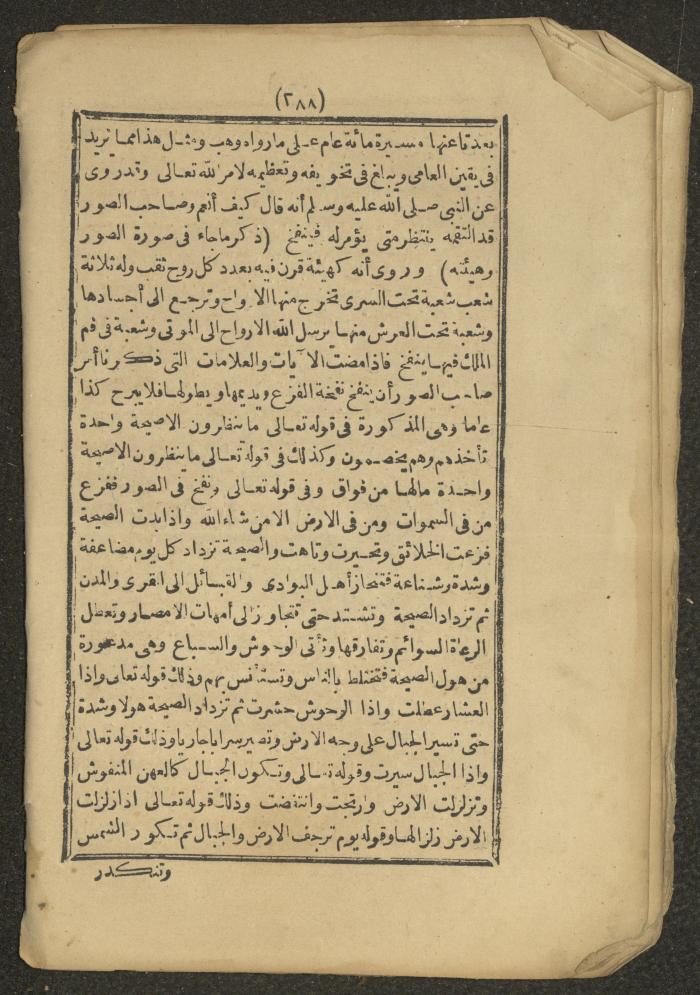 (٢٨٨)
بعد قاعتها مسيرة مائة عام على ما رواه وهب ومثل هذا مما تريد
فى يقين العامى ويبالغ فى تخويفه وتعظيمه لامر الله تعالى وقدروى
عن النبى صلى الله عليه وسلم أنه قال كيف أنعم وصاحب الصور
قد التقمه ينتظر متى يؤمر له فينفخ (ذكر ماجاء فى صورة الصور
وهيئته) وروى أنه كهيئة قرن فيه بعدد كل روح ثقب وله ثلاثة
شعب شعبة تحت السرى تخرج منها الارواح وترجع الى أجسادها
وشعبة تحت العرش منها يرسل الله الارواح الى الموتى وشعبة فى فم
الملك فيها ينفخ فاذا مضت الآيات والعلامات التى ذكرنا أمر
صاحب الصور أن ينفخ نفخة الفزع ويديمها ويطولها فلا يبرح كذا
عاما وهى المذكورة فى قوله تعالى ما ينظرون الاصيحة واحدة
تأخذهم وهم يخصمون وكذلك فى قوله تعالى ما ينظرون الاصيحة
واحدة مالها من فواق وفى قوله تعالى ونفخ فى الصور ففزع
من فى السموات ومن فى الارض الامن شاء الله واذا بدت الصيحة
فزعت الخلائق وتحيرت وتاهت والصيحة تزداد كل يوم مضاعفة
وشدة وشناعة فتنحاز أهل البوادى والقبائل الى القرى والمدن
ثم تزداد الصيحة وتشتد حتى تتجاوز الى أمهات الامصار وتعطل
الرعاة السوائم وتفارقها وتأتى الوحوش والسباع وهى مذعورة
من هول الصيحة فتختلط بالناس وتستأنس بهم وذلك قوله تعالى واذا
العشار عطلت واذا الوحوش حشرت ثم تزداد الصيحة هولا وشدة
حتى تسير الجبال على وجه الارض وتصير سرابا جاريا وذلك قوله تعالى
واذا الجبال سيرت وقوله تعالى وتكون الجبال كالعهن المنفوش
وتزلزلت الارض وارتجت وانتفضت وذلك قوله تعالى اذا زلزلت
الارض زلزالها وقوله يوم ترجف الارض والجبال ثم تكور الشمس
وتنكدر